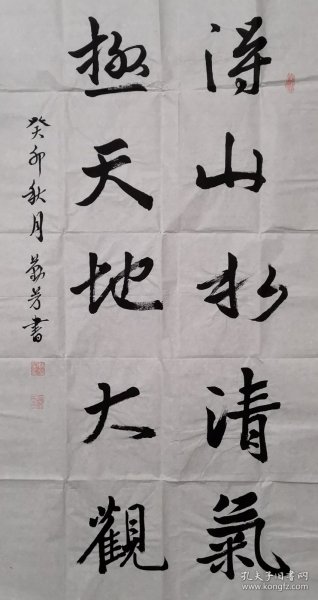 得山水清氣
極天地大觀
癸卯秋月 蘇芳書
孔夫子旧书网
www.kongfz.com